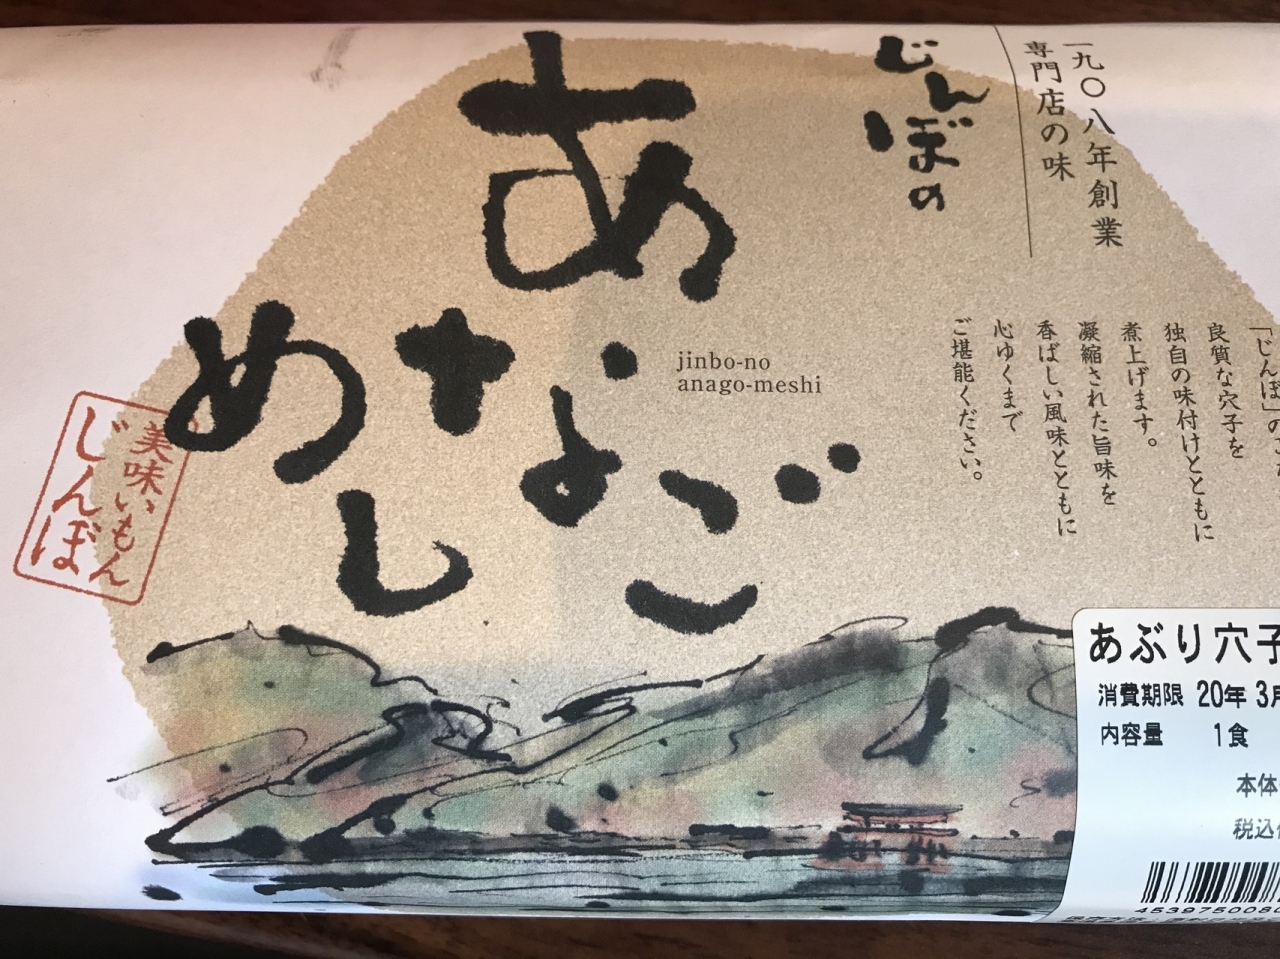 一九〇八年創業
専門店の味
じんぼの
あなご
めし
jinbo-no
anago-meshi
良質な穴子を
独自の味付けとともに
煮上げます。
凝縮された旨味を
香ばしい風味とともに
心ゆくまで
ご堪能ください。
美味いもん
じんぼ
あぶり穴子
消費期限 20年 3月
内容量 1食
本体
税込
4539750080